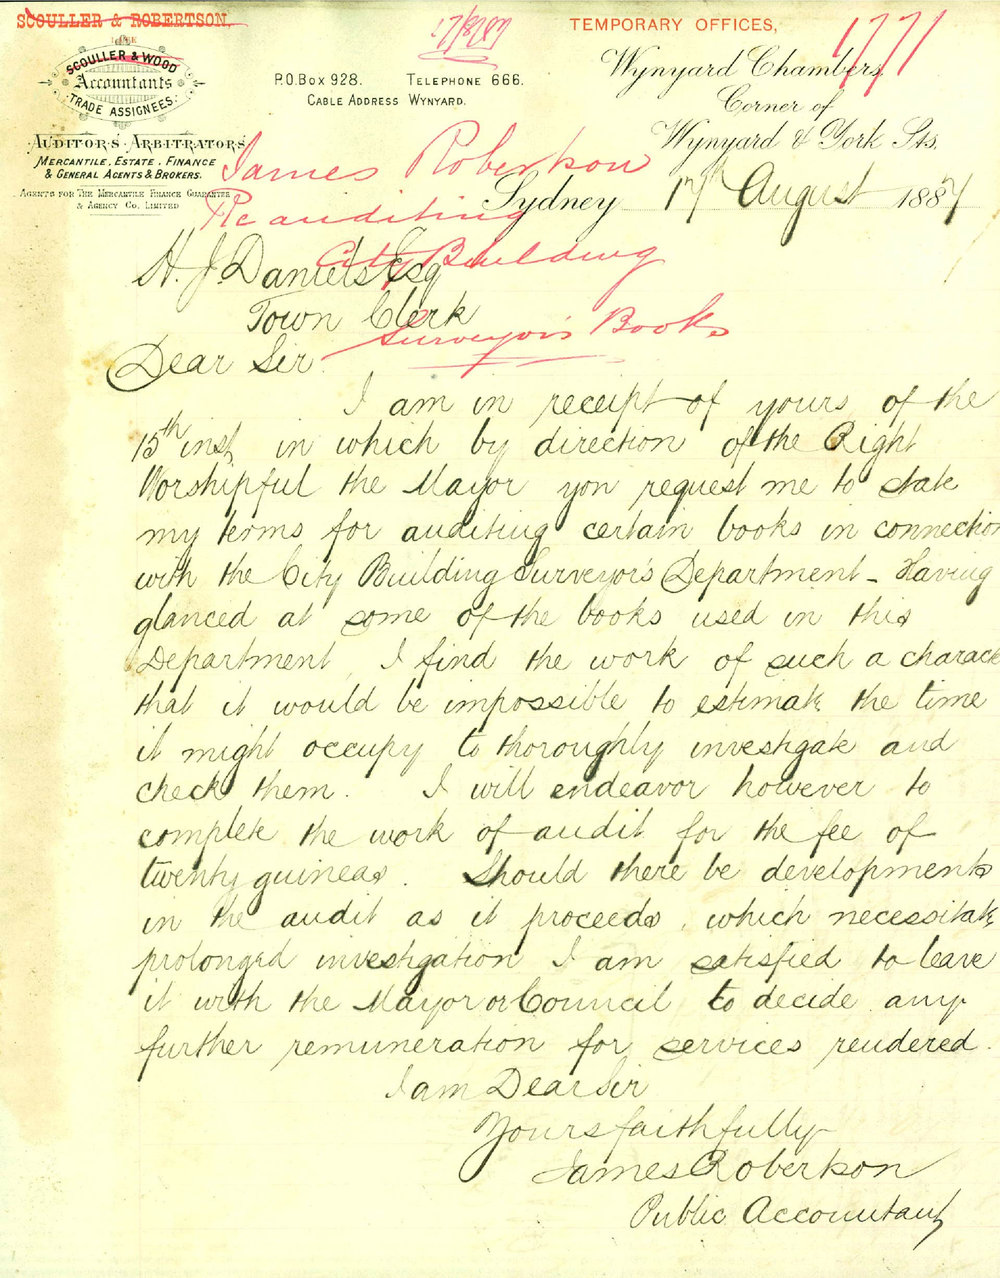 SCOULLER & ROBERTSON,
LATE
SCOULLER & WOOD
Accountants
TRADE ASSIGNEES.
AUDITORS · ARBITRATORS
MERCANTILE, ESTATE, FINANCE
& GENERAL AGENTS & BROKERS.
AGENTS FOR THE MERCANTILE FINANCE GUARANTEE
& AGENCY CO. LIMITED
17/8/87
P.O. BOX 928. TELEPHONE 666.
CABLE ADDRESS WYNYARD.
TEMPORARY OFFICES,
1771
Wynyard Chambers,
Corner of
Wynyard & York Sts.
James Robertson
Re auditing
City Building
Surveyor's Books
Sydney 17th August 1887
H. J. Daniels Esq
Town Clerk
Dear Sir
I am in receipt of yours of the
15th inst, in which by direction of the Right
Worshipful the Mayor you request me to state
my terms for auditing certain books in connection
with the City Building Surveyor's Department - Having
glanced at some of the books used in this
Department, I find the work of such a charact
that it would be impossible to estimate the time
it might occupy to thoroughly investigate and
check them. I will endeavor however to
complete the work of audit for the fee of
twenty guineas. Should there be developments
in the audit as it proceeds, which necessitate
prolonged investigation I am satisfied to leave
it with the Mayor or Council to decide any
further remuneration for services rendered.
I am Dear Sir
Yours faithfully
James Robertson
Public Accountant